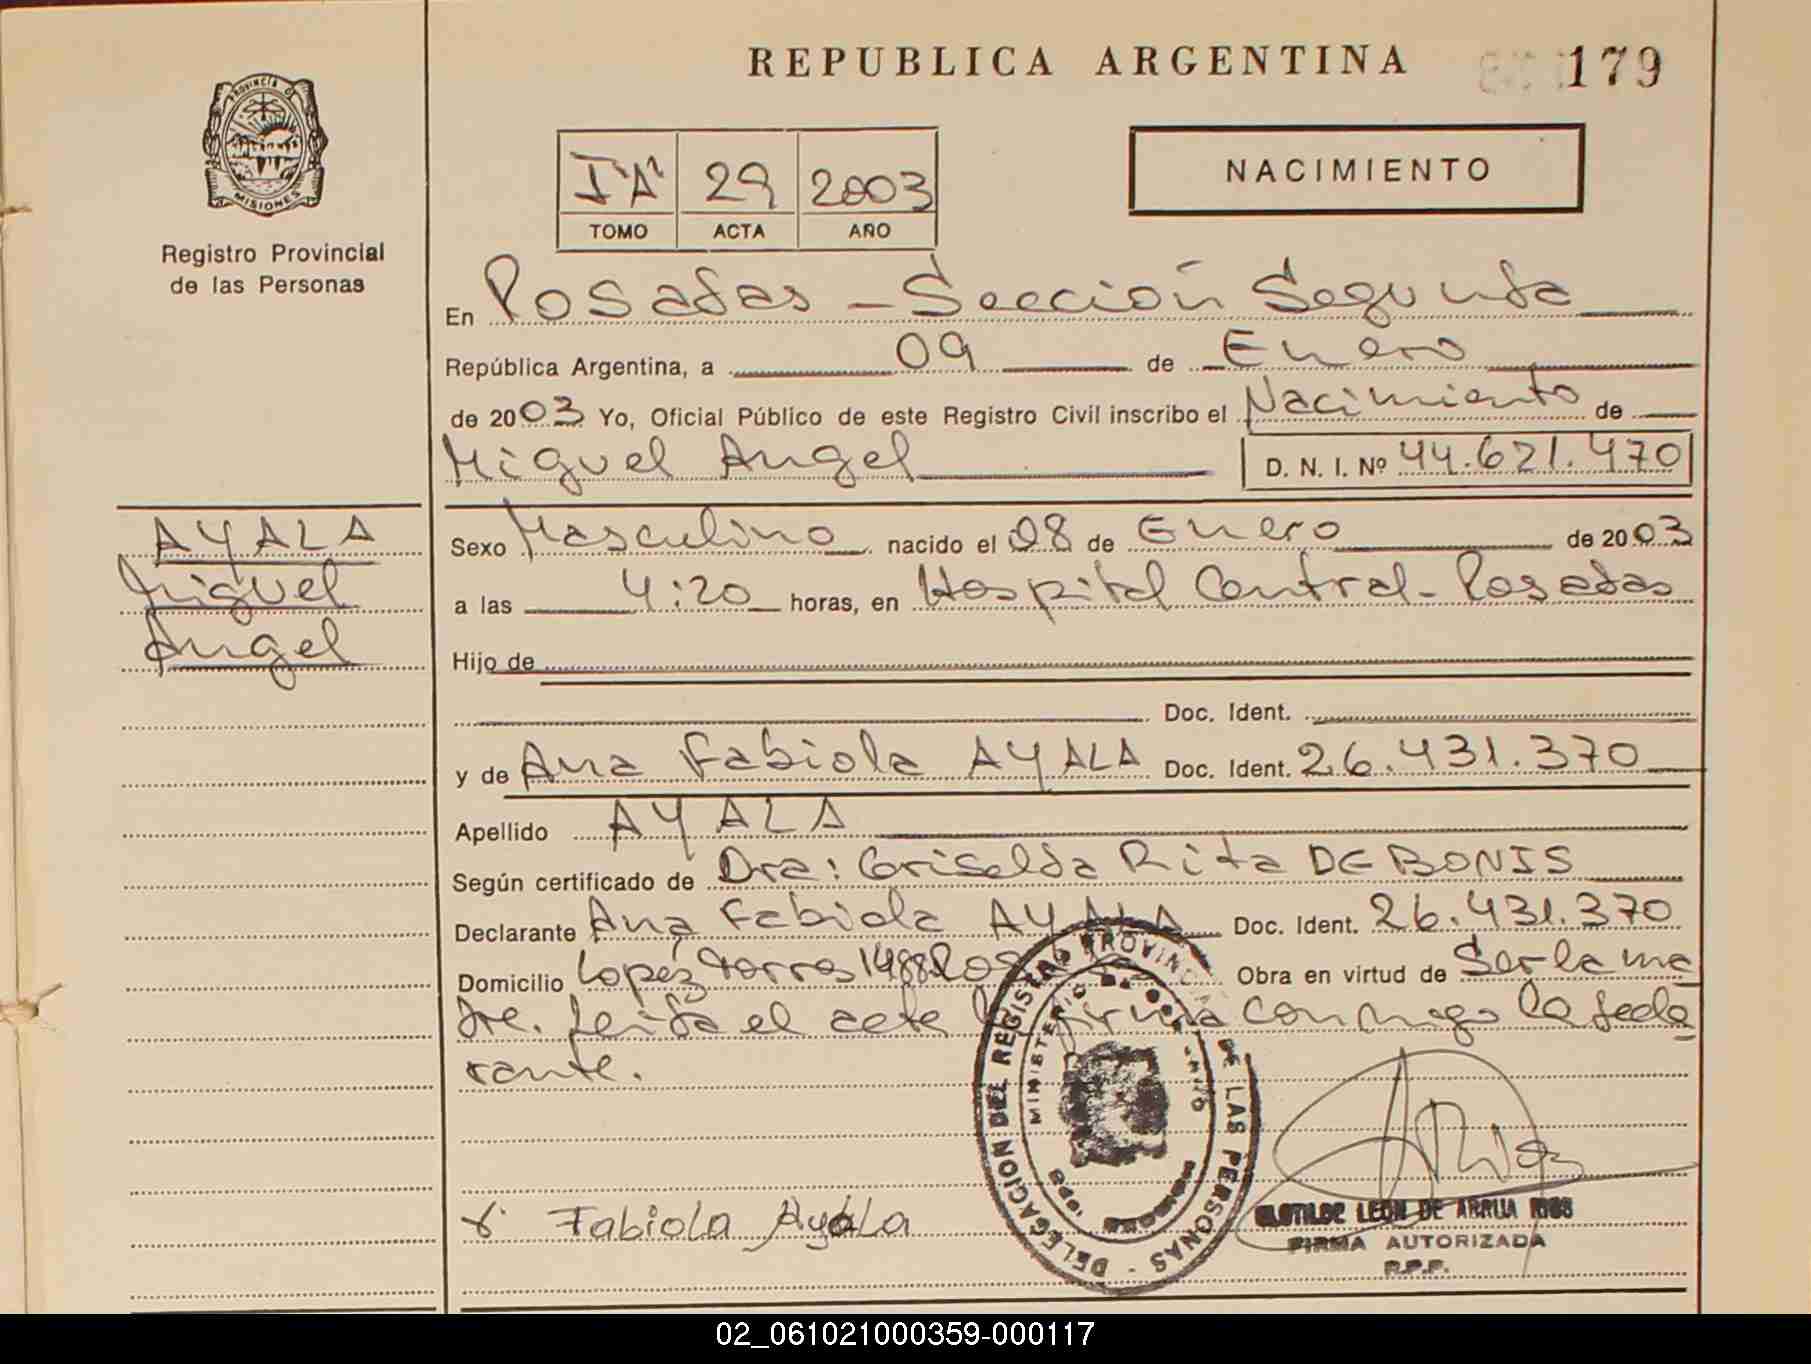 REPUBLICA ARGENTINA 179
PROVINCIA DE MISIONES
Registro Provincial
de las Personas
I "A" 29 2003
TOMO ACTA AÑO
NACIMIENTO
En Posadas - Sección Segunda
República Argentina, a 09 de Enero
de 2003 Yo, Oficial Público de este Registro Civil inscribo el Nacimiento de
Miguel Angel D. N. I. Nº 44.621.470
AYALA
Miguel
Angel
Sexo Masculino nacido el 08 de Enero de 2003
a las 4:20 horas, en Hospital Central - Posadas
Hijo de
Doc. Ident.
y de Ana Fabiola AYALA Doc. Ident. 26.431.370
Apellido AYALA
Según certificado de Dra: Griselda Rita DE BONIS
Declarante Ana Fabiola AYALA Doc. Ident. 26.431.370
Domicilio Lopez Torres 1488 Obra en virtud de Ser la ma
dre. Leida el acta la firma conmigo la decla
rante.
DELEGACION DEL REGISTRO PROVINCIAL DE LAS PERSONAS
MINISTERIO DE GOBIERNO
Fabiola Ayala
CLOTILDE LEON DE ARRUA RIOS
FIRMA AUTORIZADA
R.P.P.
02_061021000359-000117